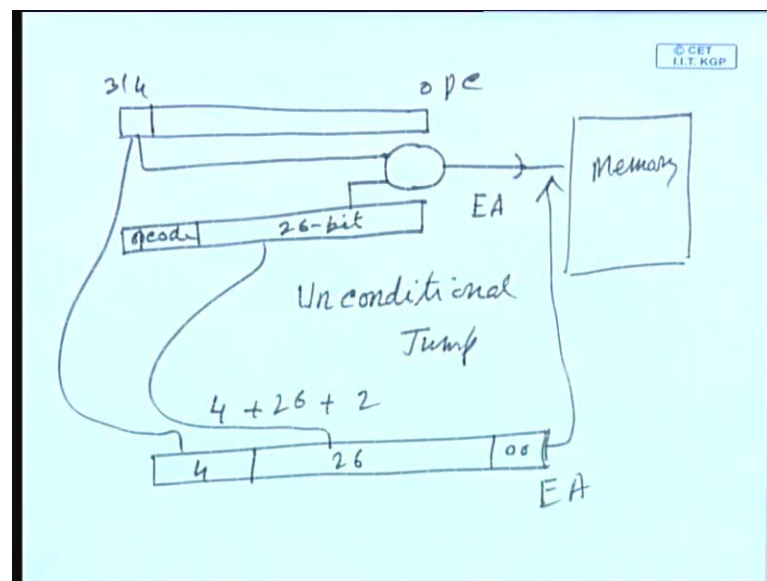 © CET
I.I.T. KGP
31 4 0 PC
Memory
EA
opcode 26-bit
Unconditional
Jump
4 + 26 + 2
4 26 00
EA